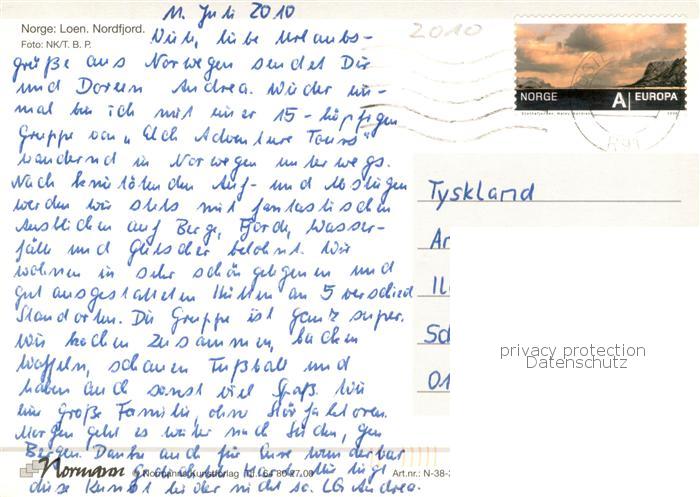 11. Juli 2010
2010
Norge: Loen. Nordfjord.
Foto: NK/T. B. P.
liebe Urlaubs-
grüße aus Norwegen sendet Dir
und Doreen Andrea. Wieder ein-
mal bin ich mit einer 15-köpfigen
Gruppe von "Elch Adventure Tours"
wandernd in Norwegen unterwegs.
Nach knietötenden Auf- und Abstiegen
werden wir stets mit fantastischen
Ausblicken auf Berge, Fjorde, Wasser-
fälle und Gletscher belohnt. Wir
wohnen in sehr schön gelegenen und
gut ausgestatteten Hütten an 5 verschied.
Standorten. Die Gruppe ist ganz super.
Wir kochen zusammen, backen
Waffeln, schauen Fußball und
haben auch sonst viel Spaß. Wie
eine große Familie, ohne Störfaktoren.
Morgen geht es weiter nach Süden, gen
Bergen. Danke auch für Eure wunderbar
diese Kunst leider nicht so. LG Andrea.
Normann
Art.nr.: N-38-
NORGE A EUROPA
Tyskland
privacy protection
Datenschutz